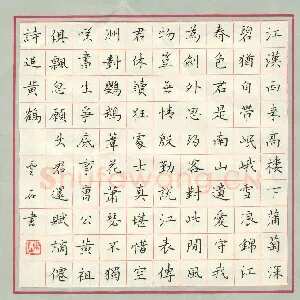 江漢西來高樓下蒲萄深
碧猶自帶岷峨雪浪錦江
春色君是南山遺愛守我
為劍外思歸客對此間風
物豈無情殷勤說江表傳
君休讀狂處士真堪惜空
洲對鸚鵡葦花蕭瑟不獨
咲書生爭底事曹公黃祖
俱飄忽願使君還賦謫僊
詩追黃鶴 雲石書